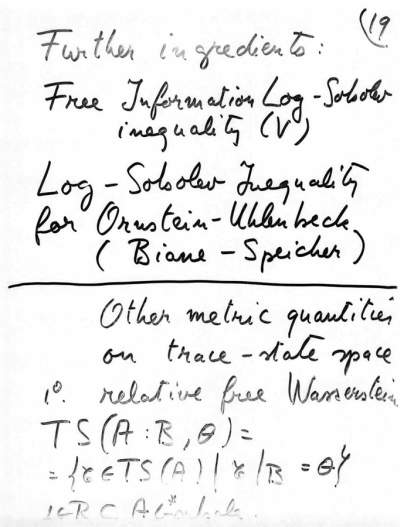 (19
Further ingredients:
Free Information Log-Sobolev
inequality (V)
Log-Sobolev Inequality
for Ornstein-Uhlenbeck
(Biane-Speicher)
Other metric quantities
on trace-state space
1º. relative free Wasserstein
TS(A:B,θ)=
={τ∈TS(A)|τ|B=θ}
1∈B⊂A